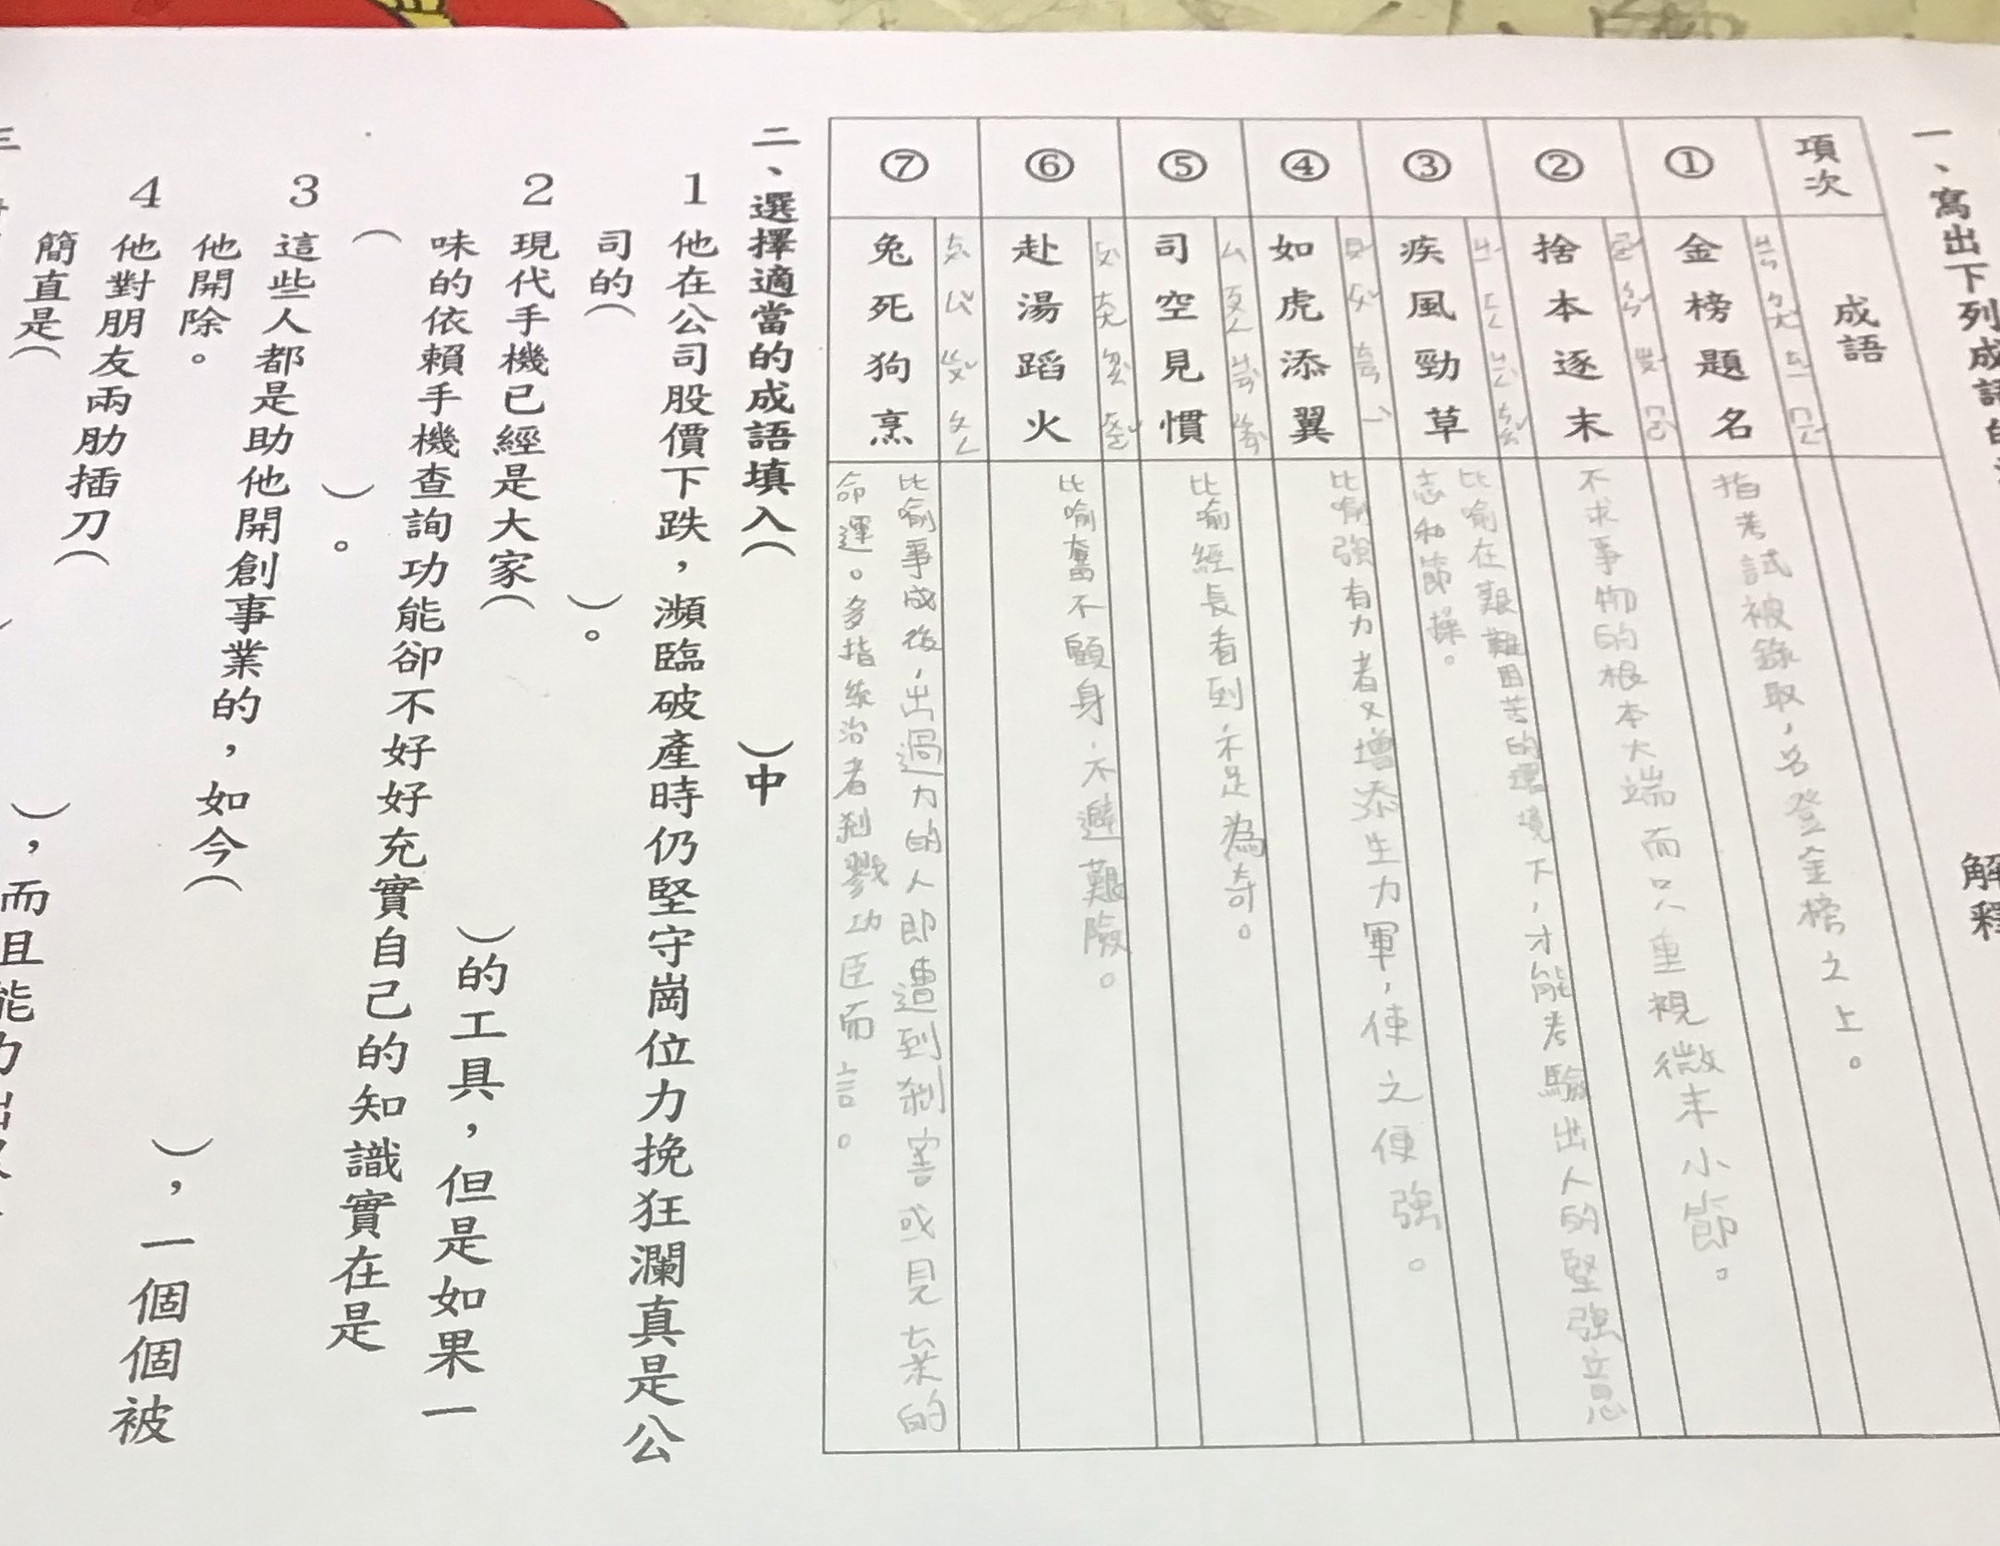 一、寫出下列成語的
項次
成語
解釋
①
金榜題名
指考試被錄取，名登金榜之上。
②
捨本逐末
不求事物的根本大端而只重視微末小節。
③
疾風勁草
比喻在艱難困苦的環境下，才能考驗出人的堅強意
志和節操。
④
如虎添翼
比喻強有力者又增添生力軍，使之更強。
⑤
司空見慣
比喻經長看到，不足為奇。
⑥
赴湯蹈火
比喻奮不顧身，不避艱險。
⑦
兔死狗烹
比喻事成後，出過力的人即遭到剎害或見棄的
命運。多指統治者剎戮功臣而言。
二、選擇適當的成語填入（ ）中
1 他在公司股價下跌，瀕臨破產時仍堅守崗位力挽狂瀾真是公
司的（ ）。
2 現代手機已經是大家（ ）的工具，但是如果一
味的依賴手機查詢功能卻不好好充實自己的知識實在是
（ ）。
3 這些人都是助他開創事業的，如今（ ），一個個被
他開除。
4 他對朋友兩肋插刀（ ），而且能力出眾
簡直是（
三